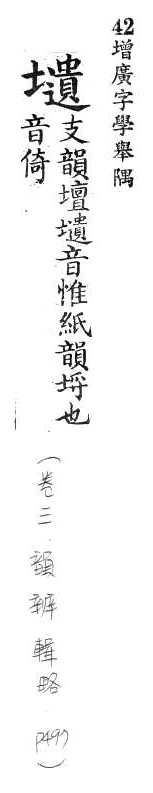 42增廣字學舉隅
壝支韻壇壝音惟紙韻埒也
音倚
(卷三 韻辨輯略 P497)